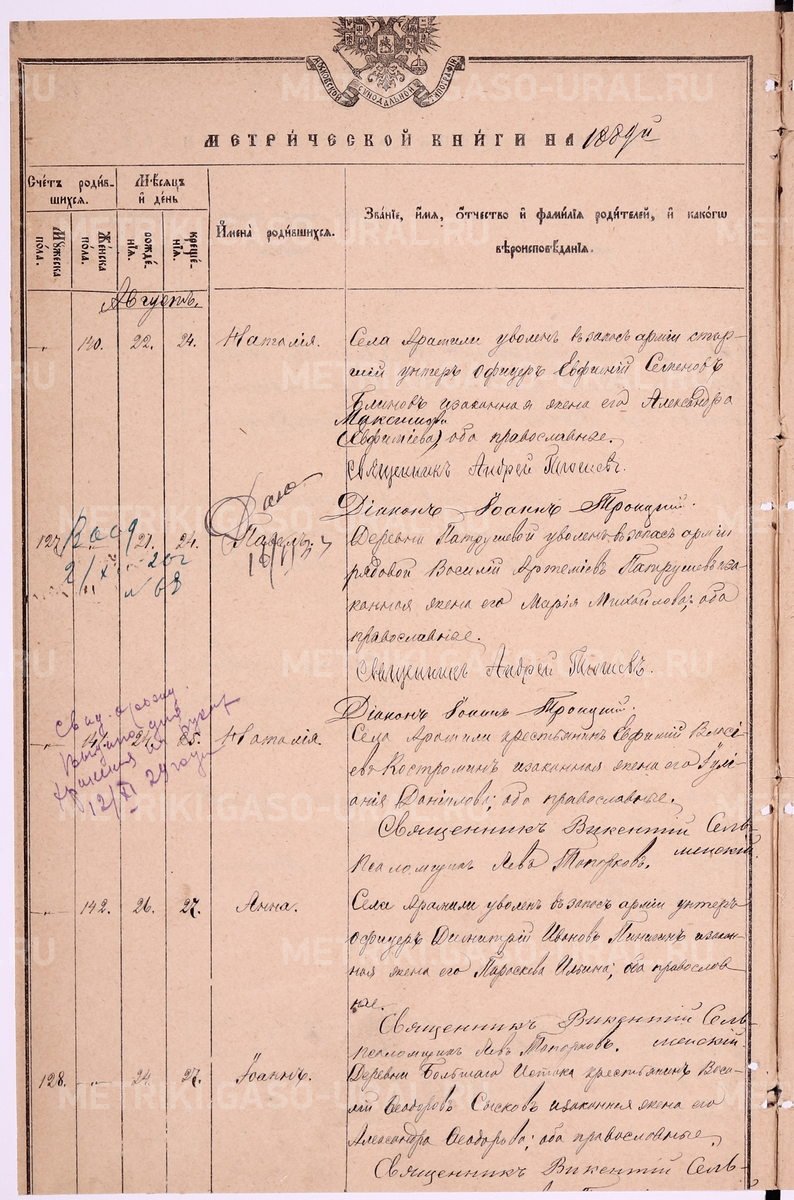 МОСКОВСКОЙ СѴНОДАЛЬНОЙ ТИПОГРАФІИ
МЕТРИ́ЧЕСКОЙ КНИ́ГИ НА 1889й
Сче́тъ роди́в-
шихся.
Му́жеска
по́ла.
Же́нска
по́ла.
Мѣ́сяцъ
и҆ де́нь
рожде́-
нїѧ.
креще́-
нїѧ.
И҆мена̀ роди́вшихся.
Зва́нїе, и҆́мѧ, ѻ҆́тчество и҆ фами́лїѧ роди́телей, и҆ како́гѡ
вѣроисповѣ́данїѧ.
Августъ.
-"- 140. 22. 24. Наталія.
Села Арамили уволен. в запасъ арміи стар-
шій унтеръ офицеръ Евфимій Семеновъ
Блиновъ и законная жена его Александра
Максимова
(Евфиміева) оба православные.
Священникъ Андрей
Діаконъ Іоаннъ Троицкій.
127. -"- 21. 24. Павелъ.
Дано
Деревни Патрушевой уволен. в запасъ арміи
рядовой Василій Артеміевъ Патрушевъ и за-
конная жена его Марія Михайлова; оба
православные.
Священникъ Андрей
Діаконъ Іоаннъ Троицкій.
№ 68
12/XI 29 года
-"- 25. Наталія.
Села Арамили крестьянинъ Евфимій Власі-
евъ Костроминъ и законная жена его Іулі-
анія Данилова; оба православные.
Священникъ Викентій Сель-
менскій.
Псаломщикъ Левъ Топорковъ.
-"- 142. 26. 27. Анна.
Села Арамили уволен. в запасъ арміи унтеръ
офицеръ Димитрій Ивановъ Пинигинъ и закон-
ная жена его Параскева Ильина; оба православ-
ные.
Священникъ Викентій Сель-
менскій.
Псаломщикъ Левъ Топорковъ.
128. -"- 24. 27. Іоаннъ.
Деревни Большаго Истока крестьянинъ Васи-
лій Ѳеодоровъ Сысковъ и законная жена его
Александра Ѳеодорова; оба православные.
Священникъ Викентій Сель-
METRIKI.GASO-URAL.RU